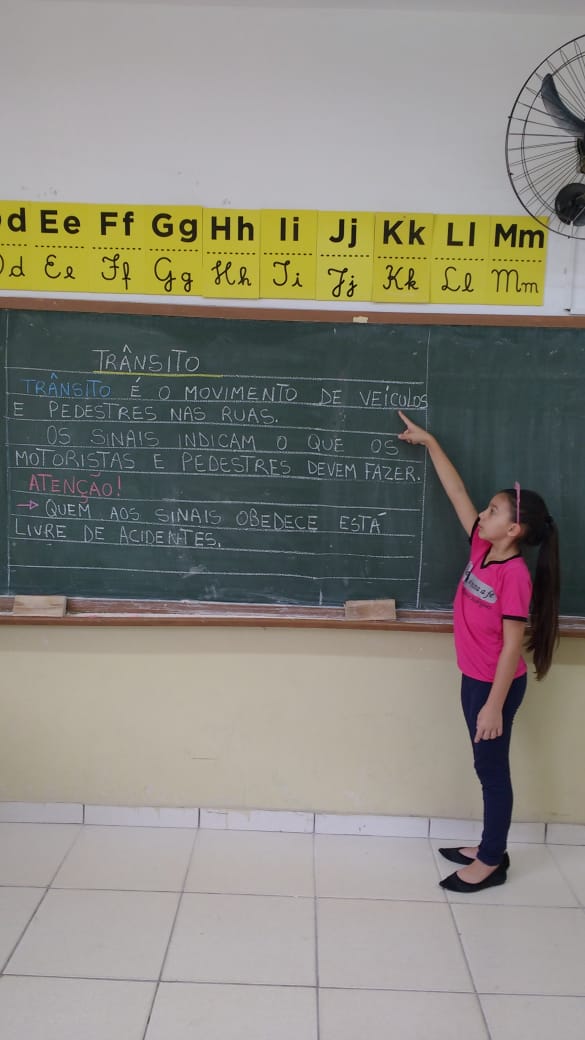 d Ee Ff Gg Hh Ii Jj Kk Ll Mm
d Ee Ff Gg Hh Ii Jj Kk Ll Mm
TRÂNSITO
TRÂNSITO É O MOVIMENTO DE VEÍCULOS
E PEDESTRES NAS RUAS.
OS SINAIS INDICAM O QUE OS
MOTORISTAS E PEDESTRES DEVEM FAZER.
ATENÇÃO!
→ QUEM AOS SINAIS OBEDECE ESTÁ
LIVRE DE ACIDENTES.